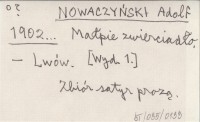 NOWACZYŃSKI Adolf
1902... Małpie zwierciadło,
– Lwów. [Wyd. 1.]
Zbiór satyr prozą.